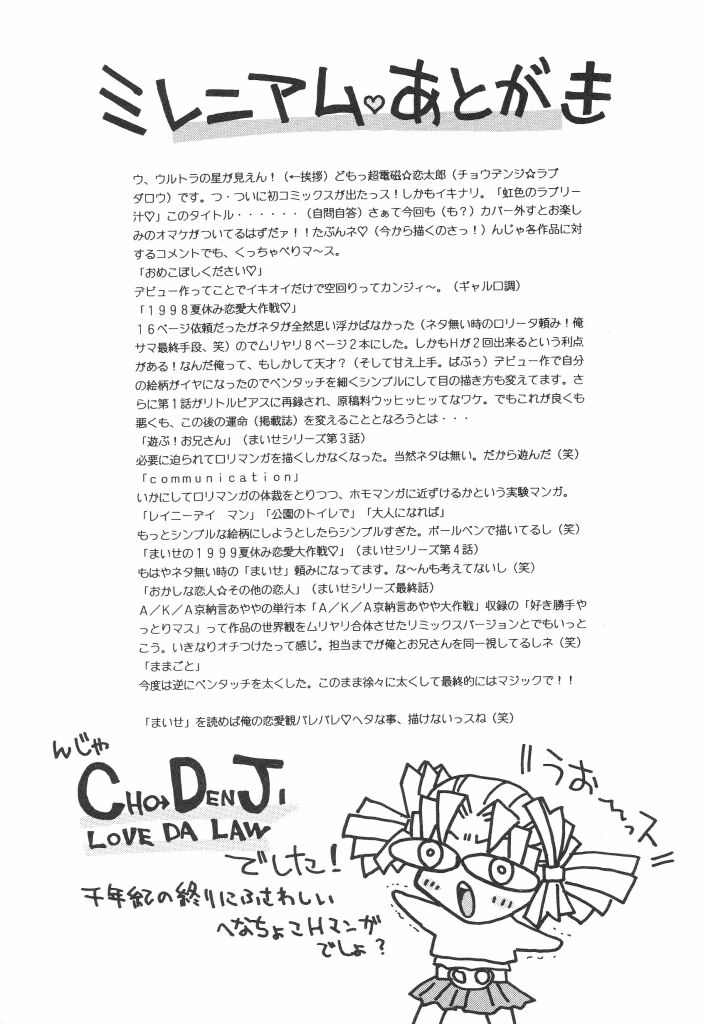 ミレニアム♡あとがき
ウ、ウルトラの星が見えん！（←挨拶）どもっ超電磁☆恋太郎（チョウデンジ☆ラブ
ダロウ）です。つ・ついに初コミックスが出たっス！しかもイキナリ。「虹色のラブリー
汁♡」このタイトル・・・・・・（自問自答）さぁて今回も（も？）カバー外すとお楽し
みのオマケがついてるはずだァ！！たぶんネ♡（今から描くのさっ！）んじゃ各作品に対
するコメントでも、くっちゃべりマ～ス。
「おめこぼしください♡」
デビュー作ってことでイキオイだけで空回りってカンジィ～。（ギャル口調）
「１９９８夏休み恋愛大作戦♡」
１６ページ依頼だったがネタが全然思い浮かばなかった（ネタ無い時のロリータ頼み！俺
サマ最終手段、笑）のでムリヤリ８ページ２本にした。しかもＨが２回出来るという利点
がある！なんだ俺って、もしかして天才？（そして甘え上手。ばぶぅ）デビュー作で自分
の絵柄がイヤになったのでペンタッチを細くシンプルにして目の描き方も変えてます。さ
らに第１話がリトルピアスに再録され、原稿料ウッヒッヒッてなワケ。でもこれが良くも
悪くも、この後の運命（掲載誌）を変えることとなろうとは・・・
「遊ぶ！お兄さん」（まいせシリーズ第３話）
必要に迫られてロリマンガを描くしかなくなった。当然ネタは無い。だから遊んだ（笑）
「ｃｏｍｍｕｎｉｃａｔｉｏｎ」
いかにしてロリマンガの体裁をとりつつ、ホモマンガに近ずけるかという実験マンガ。
「レイニーデイ　マン」「公園のトイレで」「大人になれば」
もっとシンプルな絵柄にしようとしたらシンプルすぎた。ボールペンで描いてるし（笑）
「まいせの１９９９夏休み恋愛大作戦♡」（まいせシリーズ第４話）
もはやネタ無い時の「まいせ」頼みになってます。な～んも考えてないし（笑）
「おかしな恋人☆その他の恋人」（まいせシリーズ最終話）
Ａ／Ｋ／Ａ京納言あややの単行本「Ａ／Ｋ／Ａ京納言あやや大作戦」収録の「好き勝手や
っとりマス」って作品の世界観をムリヤリ合体させたリミックスバージョンとでもいっと
こう。いきなりオチつけたって感じ。担当までが俺とお兄さんを同一視してるしネ（笑）
「ままごと」
今度は逆にペンタッチを太くした。このまま徐々に太くして最終的にはマジックで！！
「まいせ」を読めば俺の恋愛観バレバレ♡ヘタな事、描けないっスね（笑）
んじゃ
CHO→DENJI
LOVE DA LAW
でした！
千年紀の終りにふさわしい
へなちょこHマンガ
でしょ？
うお～っス